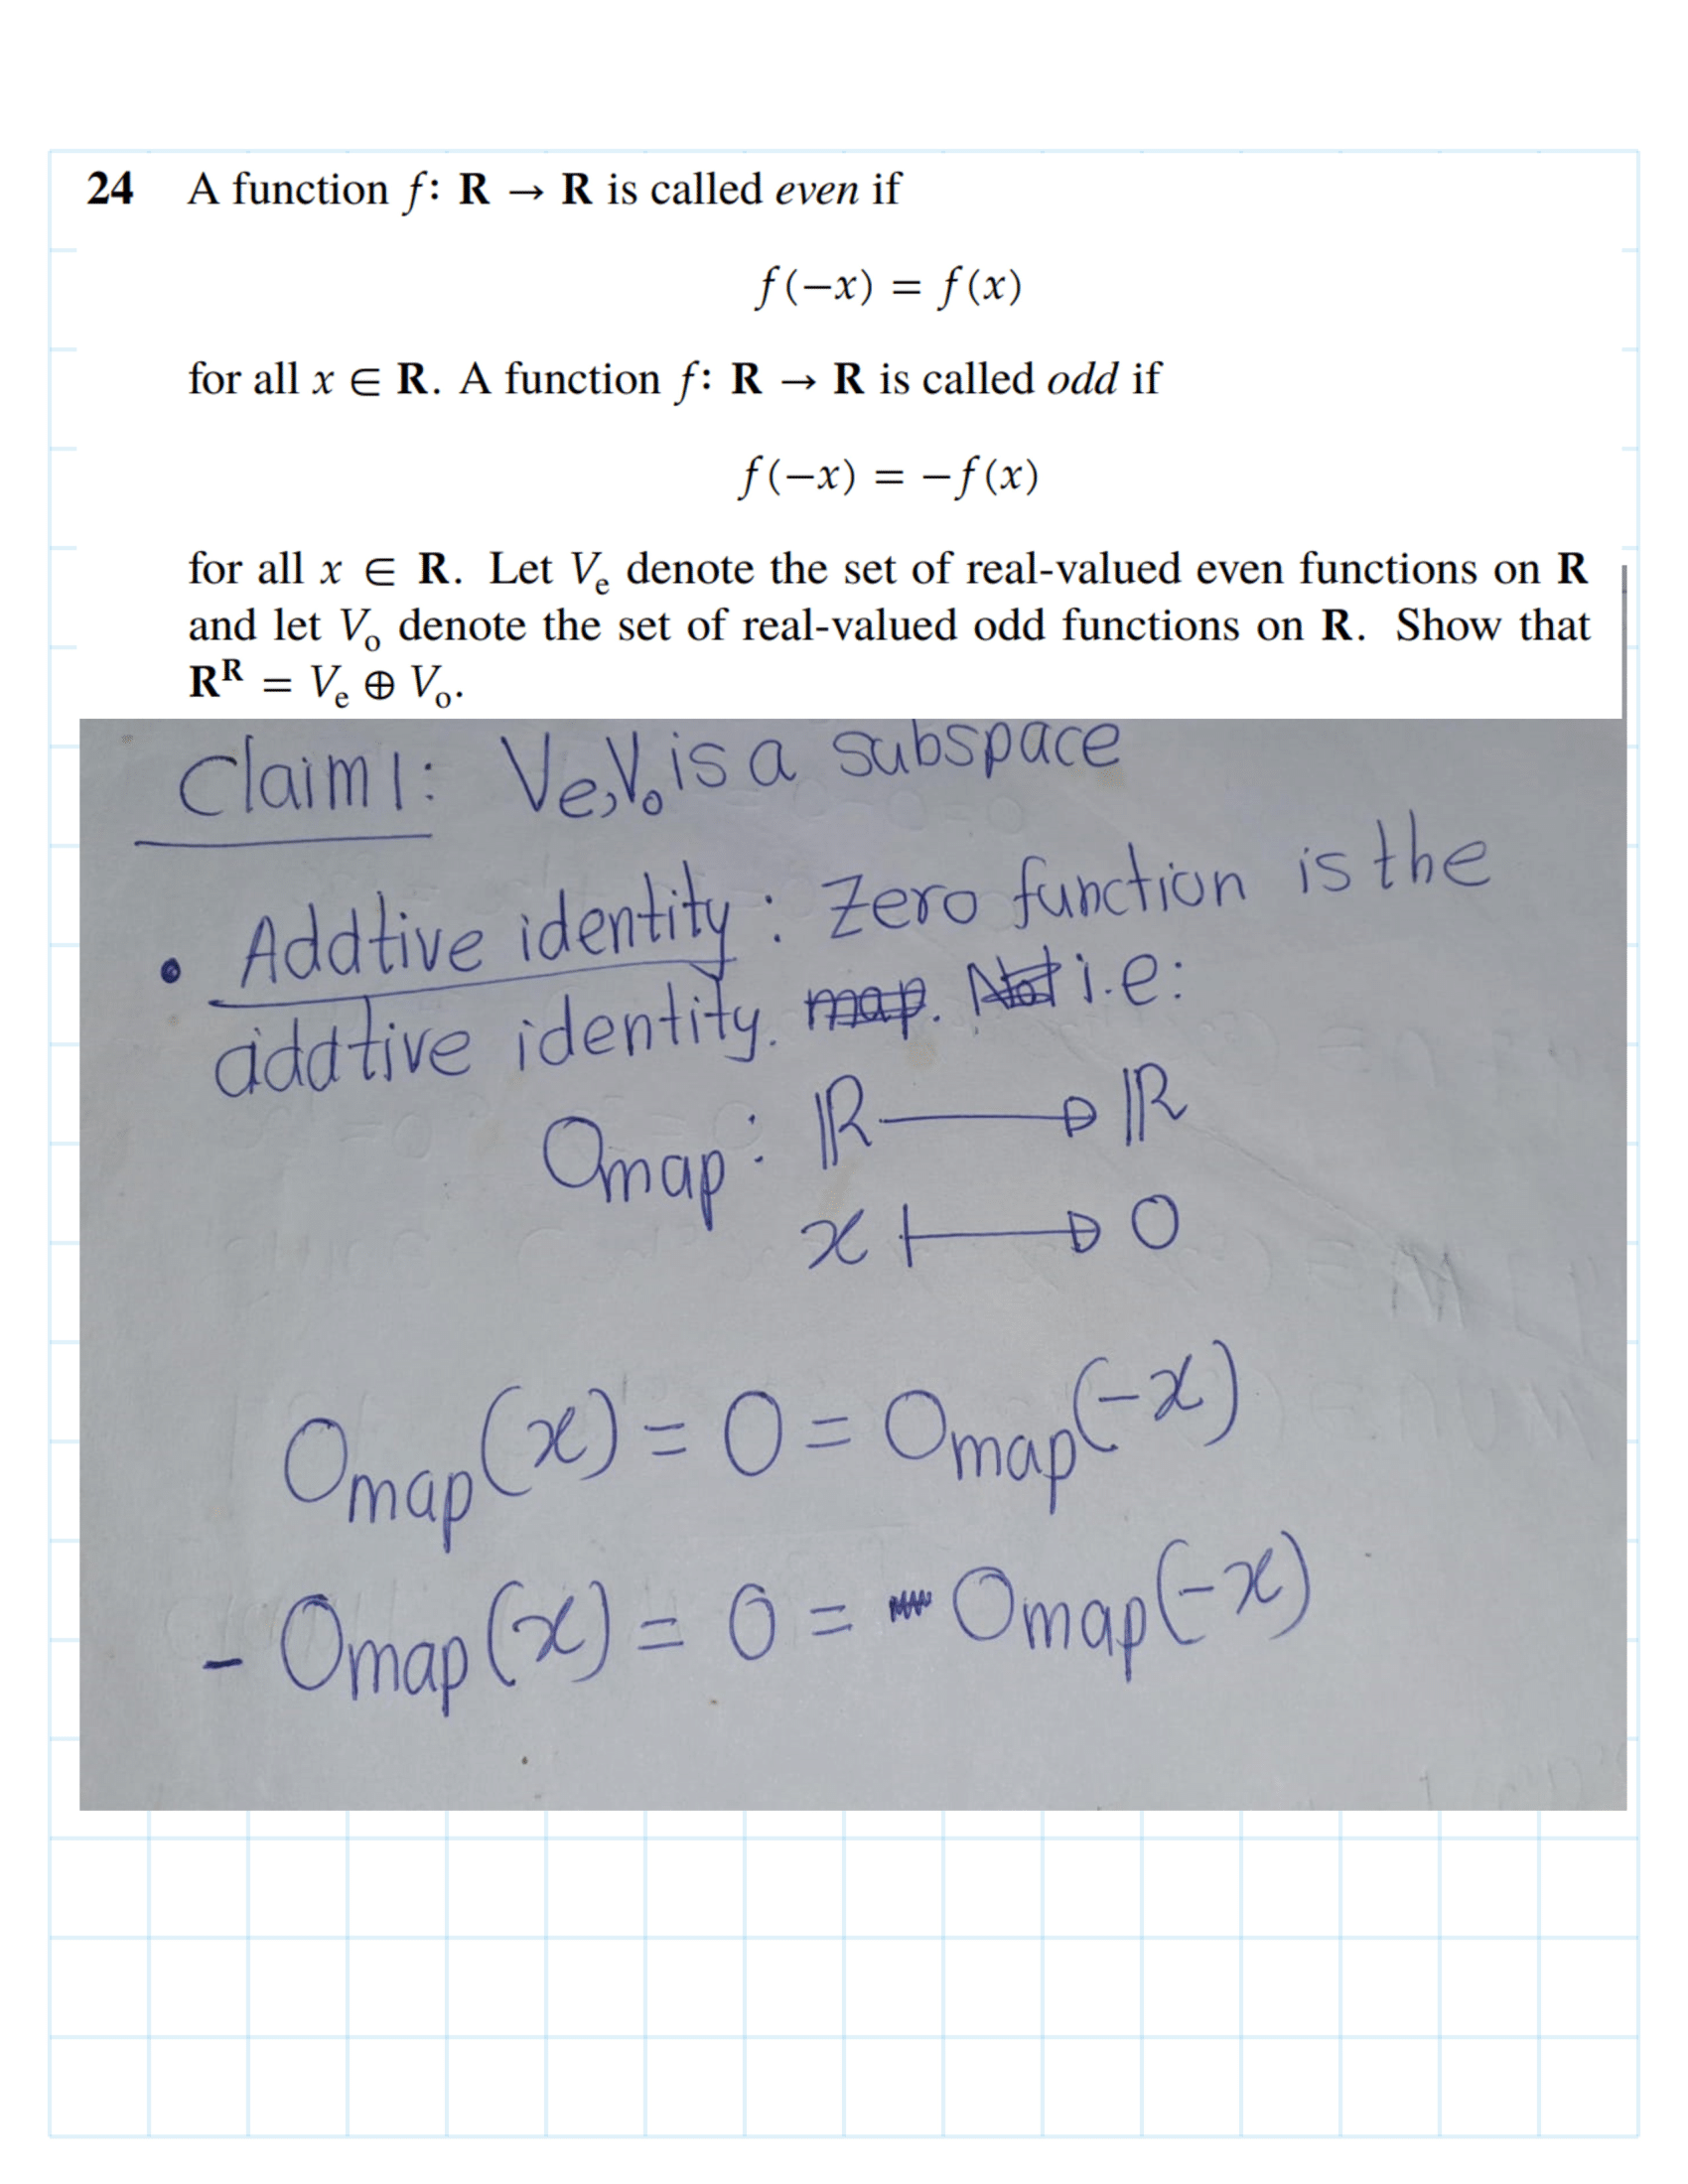 24 A function f: R → R is called even if
f(−x) = f(x)
for all x ∈ R. A function f: R → R is called odd if
f(−x) = −f(x)
for all x ∈ R. Let Vₑ denote the set of real-valued even functions on R
and let Vₒ denote the set of real-valued odd functions on R. Show that
Rᴿ = Vₑ ⊕ Vₒ.
Claim 1: Ve,Vo is a subspace
• Addtive identity: Zero function is the
addtive identity. map. Not i.e:
Omap: ℝ → ℝ
x ↦ 0
Omap(x) = 0 = Omap(-x)
- Omap(x) = 0 = Omap(-x)